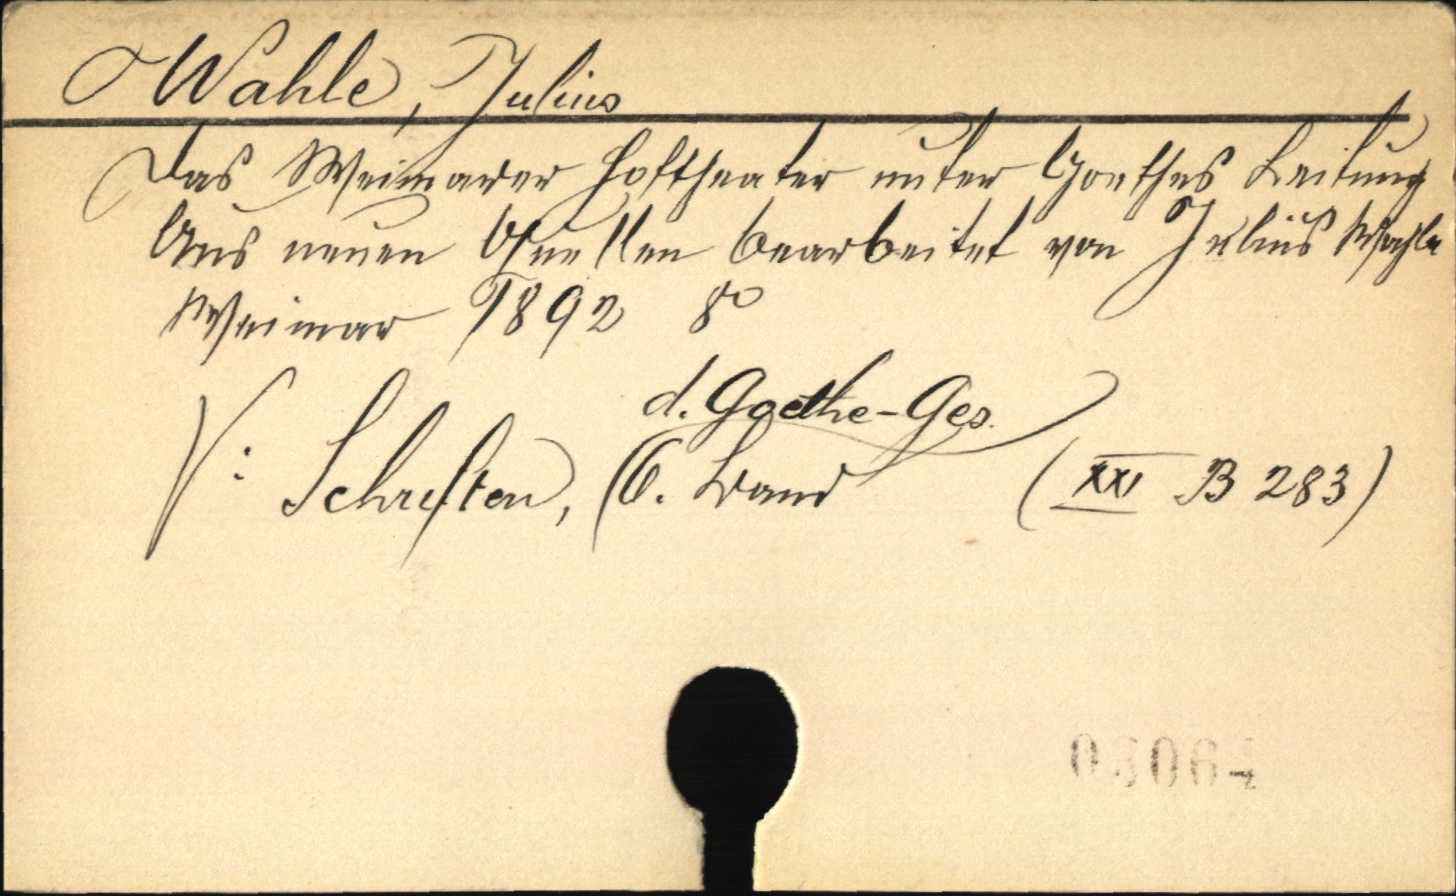 Wahle, Julius
Das Weimarer Hoftheater unter Goethes Leitung
Aus neuen Quellen bearbeitet von Julius Wahle
Weimar 1892 8°
d. Goethe-Ges.
V: Schriften, 6. Band (XXI B 283)